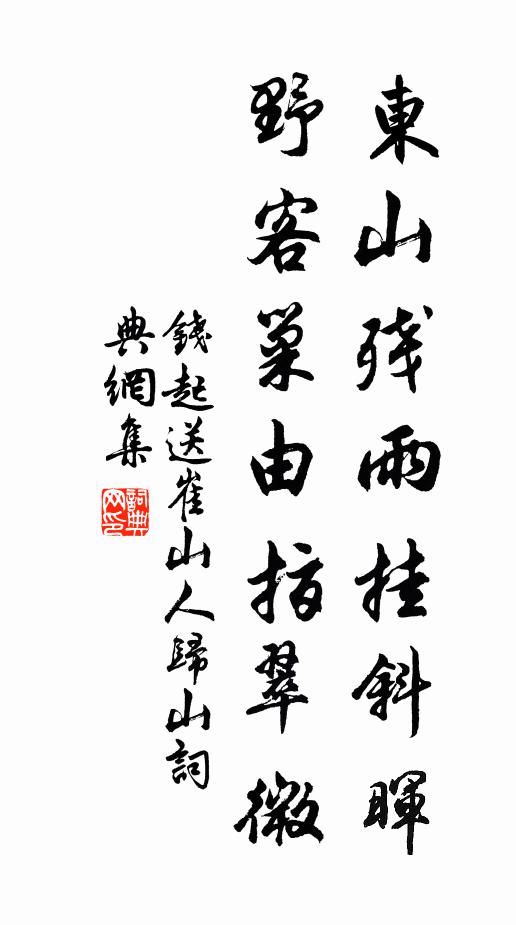 東山残雨挂斜暉
野客巢由指翠微
錢起送崔山人歸山詞
典網集
詞典网印